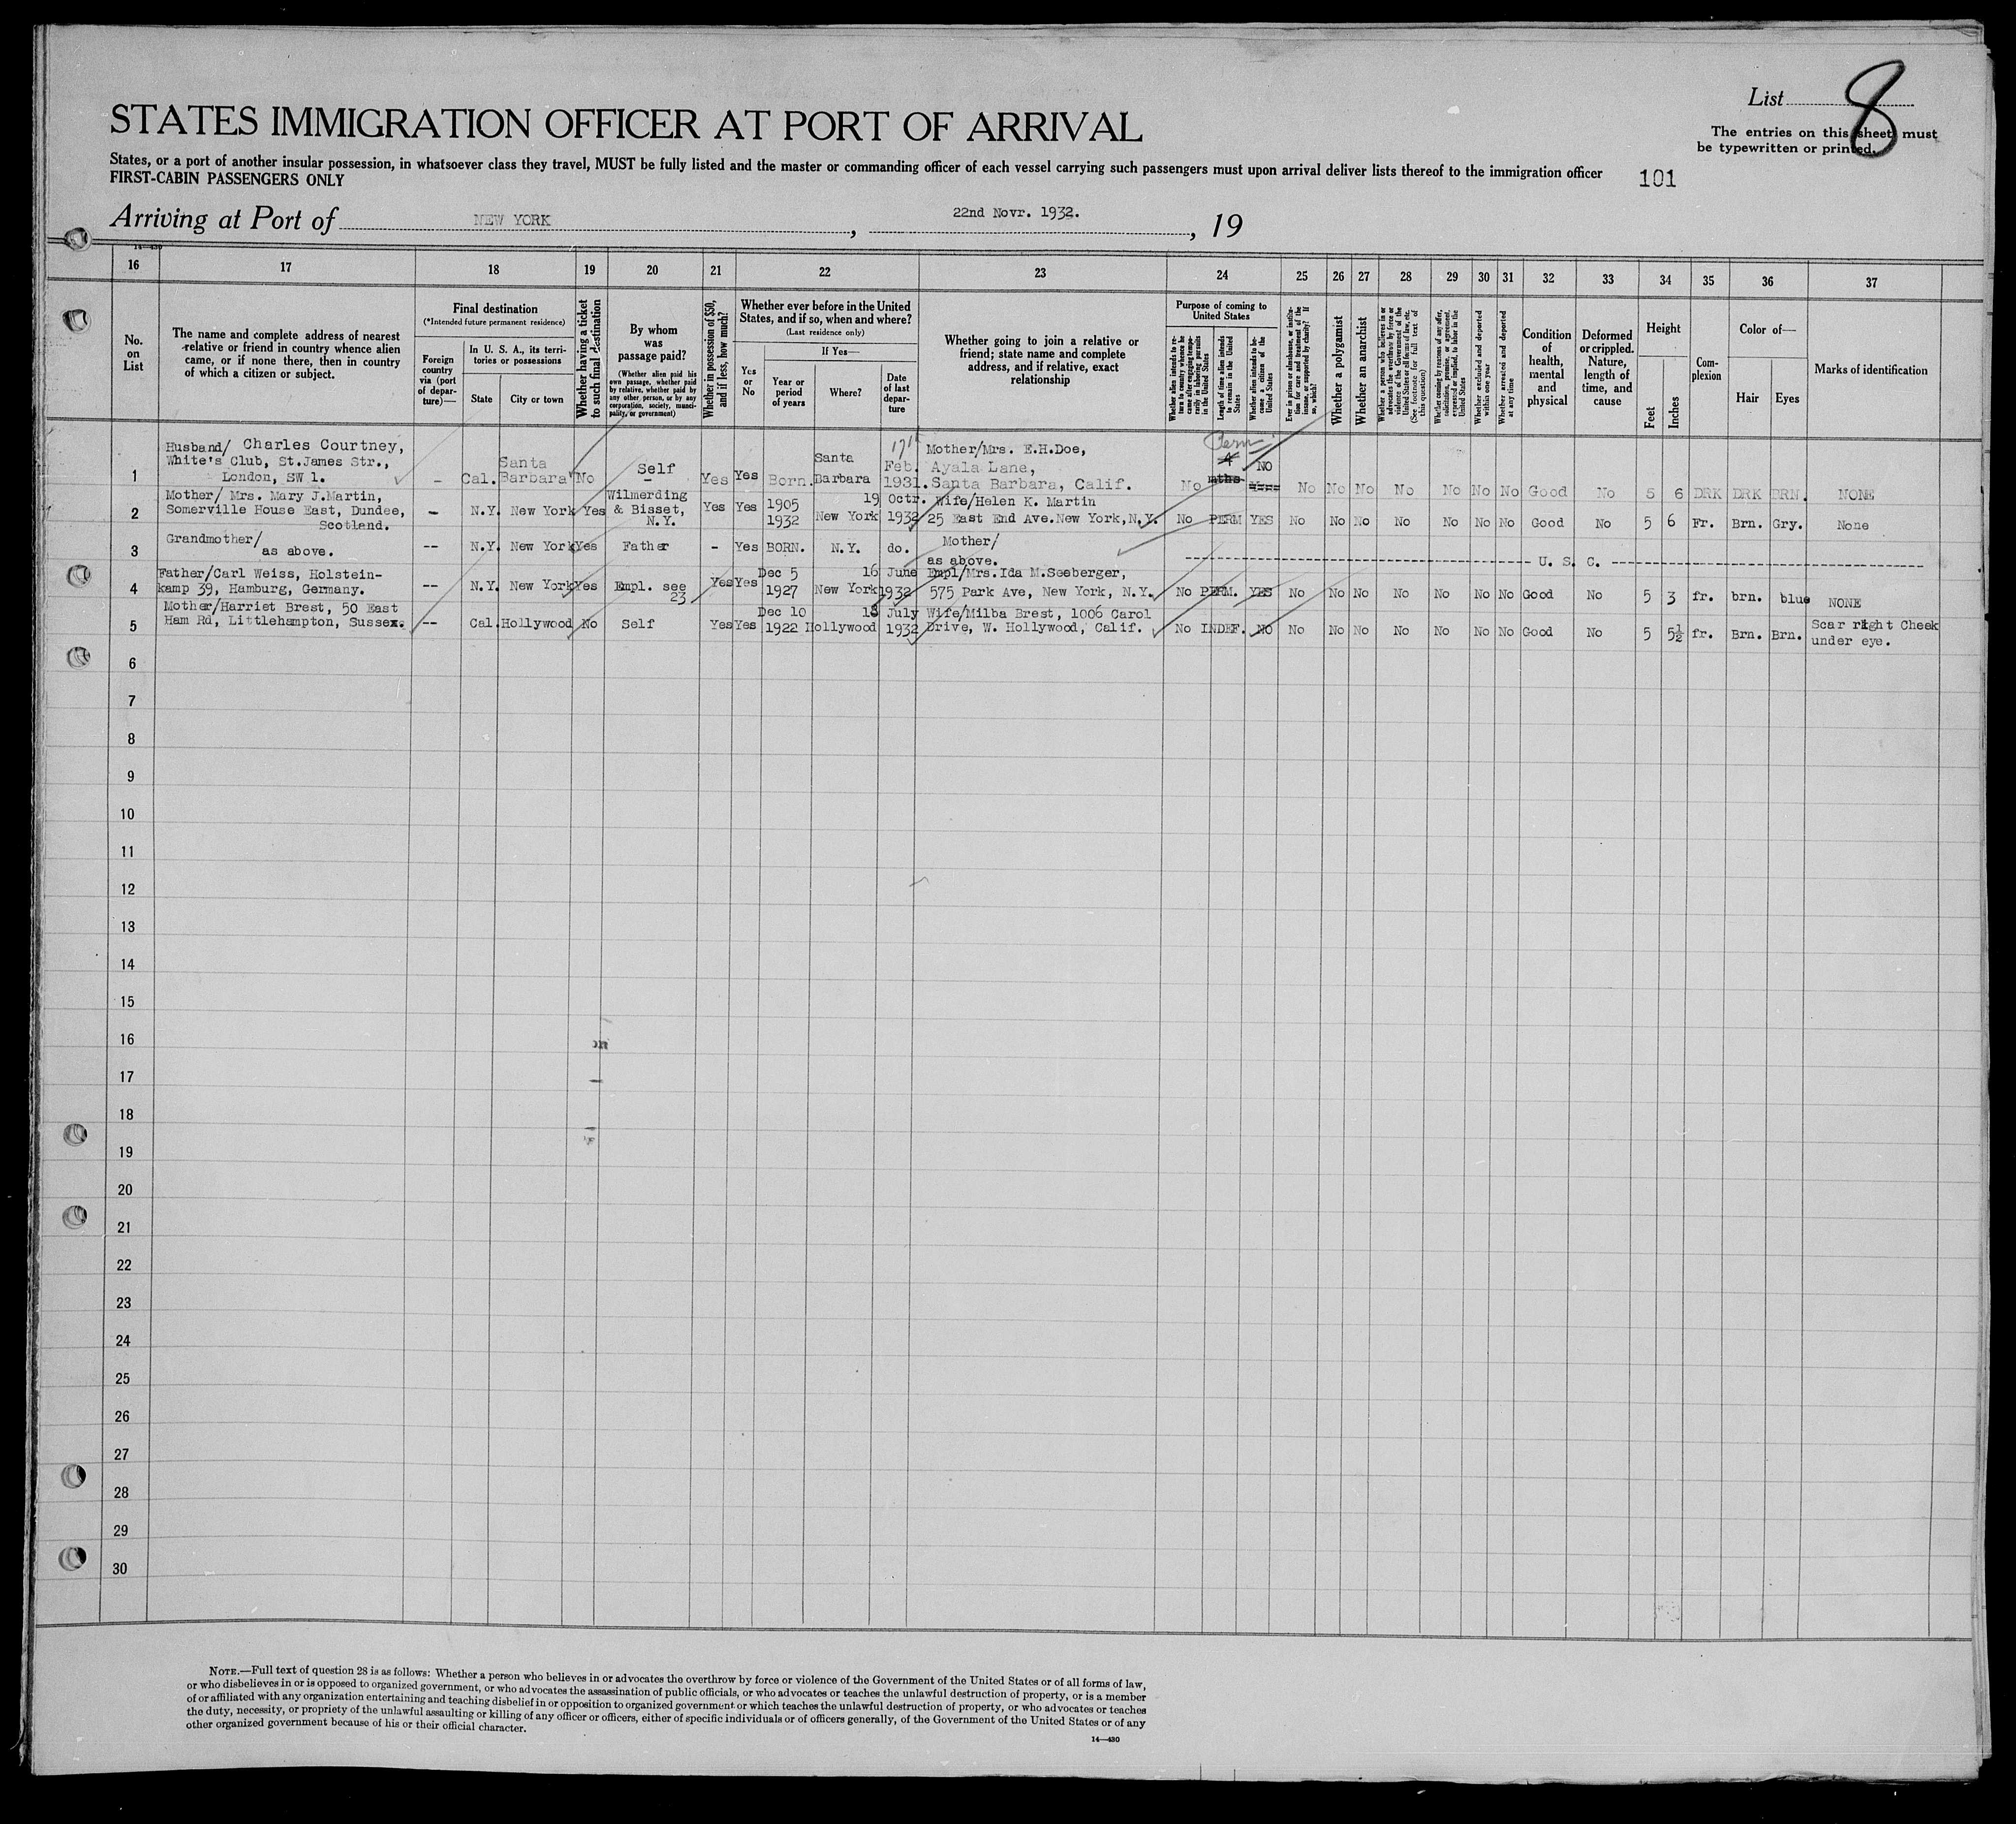 List 8
STATES IMMIGRATION OFFICER AT PORT OF ARRIVAL
The entries on this sheet must
be typewritten or printed.
States, or a port of another insular possession, in whatsoever class they travel, MUST be fully listed and the master or commanding officer of each vessel carrying such passengers must upon arrival deliver lists thereof to the immigration officer
FIRST-CABIN PASSENGERS ONLY
101
Arriving at Port of NEW YORK, 22nd Novr. 1932., 19
14—430
16 17 18 19 20 21 22 23 24 25 26 27 28 29 30 31 32 33 34 35 36 37
No. on List
The name and complete address of nearest relative or friend in country whence alien came, or if none there, then in country of which a citizen or subject.
Final destination
(*Intended future permanent residence)
Foreign country via (port of departure)—
In U. S. A., its territories or possessions
State
City or town
Whether having a ticket to such final destination
By whom was passage paid?
(Whether alien paid his own passage, whether paid by relative, whether paid by any other person, or by any corporation, society, municipality, or government)
Whether in possession of $50, and if less, how much?
Whether ever before in the United States, and if so, when and where?
(Last residence only)
Yes or No
If Yes—
Year or period of years
Where?
Date of last departure
Whether going to join a relative or friend; state name and complete address, and if relative, exact relationship
Purpose of coming to United States
Whether alien intends to return to country whence he came after engaging temporarily in laboring pursuits in the United States
Length of time alien intends to remain in the United States
Whether alien intends to become a citizen of the United States
Ever in prison or almshouse, or institution for care and treatment of the insane, or supported by charity? If so, which?
Whether a polygamist
Whether an anarchist
Whether a person who believes in or advocates the overthrow by force or violence of the Government of the United States or all forms of law, etc. (See footnote for full text of this question)
Whether coming by reasons of any offer, solicitation, promise, or agreement, expressed or implied, to labor in the United States
Whether excluded and deported within one year
Whether arrested and deported at any time
Condition of health, mental and physical
Deformed or crippled. Nature, length of time, and cause
Height
Feet
Inches
Complexion
Color of—
Hair
Eyes
Marks of identification
1 Husband/ Charles Courtney, White's Club, St.James Str., London, SW 1. - Cal. Santa Barbara No Self - Yes Yes Born. Santa Barbara 17th Feb. 1931. Mother/Mrs. E.H.Doe, Ayala Lane, Santa Barbara, Calif. No Perm 4 mths NO No No No No No No No Good No 5 6 DRK DRK BRN. NONE
2 Mother/ Mrs. Mary J.Martin, Somerville House East, Dundee, Scotland. - N.Y. New York Yes Wilmerding & Bisset, N.Y. Yes Yes 1905 1932 New York 19 Octr. 1932 Wife/Helen K. Martin 25 East End Ave.New York,N.Y. No PERM YES No No No No No No No Good No 5 6 Fr. Brn. Gry. None
3 Grandmother/ as above. -- N.Y. New York Yes Father - Yes BORN. N.Y. do. Mother/ as above. U. S. C.
4 Father/Carl Weiss, Holstein-kamp 39, Hamburg, Germany. -- N.Y. New York Yes Empl. see 23 Yes Yes Dec 5 1927 New York 16 June 1932 Empl/Mrs.Ida M.Seeberger, 575 Park Ave, New York, N.Y. No PERM. YES No No No No No No No Good No 5 3 fr. brn. blue NONE
5 Mother/Harriet Brest, 50 East Ham Rd, Littlehampton, Sussex. -- Cal. Hollywood No Self Yes Yes Dec 10 1922 Hollywood 18 July 1932 Wife/Milba Brest, 1006 Carol Drive, W. Hollywood, Calif. No INDEF. NO No No No No No No No Good No 5 5½ fr. Brn. Brn. Scar right Cheek under eye.
6
7
8
9
10
11
12
13
14
15
16
17
18
19
20
21
22
23
24
25
26
27
28
29
30
NOTE.—Full text of question 28 is as follows: Whether a person who believes in or advocates the overthrow by force or violence of the Government of the United States or of all forms of law,
or who disbelieves in or is opposed to organized government, or who advocates the assassination of public officials, or who advocates or teaches the unlawful destruction of property, or is a member
of or affiliated with any organization entertaining and teaching disbelief in or opposition to organized government or which teaches the unlawful destruction of property, or who advocates or teaches
the duty, necessity, or propriety of the unlawful assaulting or killing of any officer or officers, either of specific individuals or of officers generally, of the Government of the United States or of any
other organized government because of his or their official character.
14—430